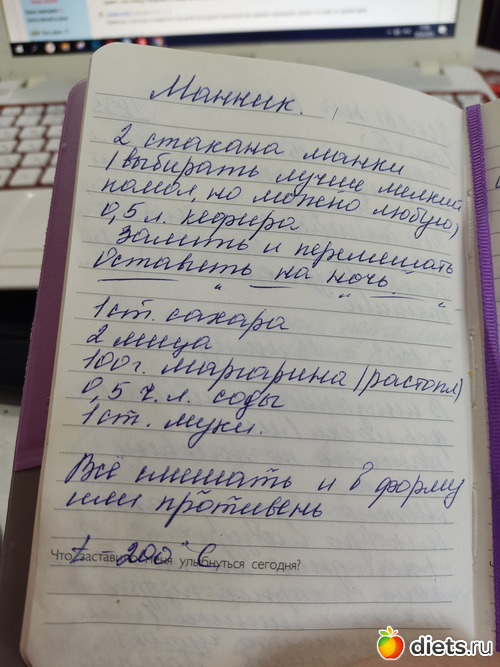 Манник.
2 стакана манки
(выбирать лучше мелкий
помол, но можно любую)
0,5 л. кефира
Залить и перемешать
Оставить на ночь.
1 ст. сахара
2 яйца
100 г. маргарина (растопл)
0,5 ч. л. соды
1 ст. муки.
Всё смешать и в форму
или противень
t - 200° С
Что заставило меня улыбнуться сегодня?
diets.ru